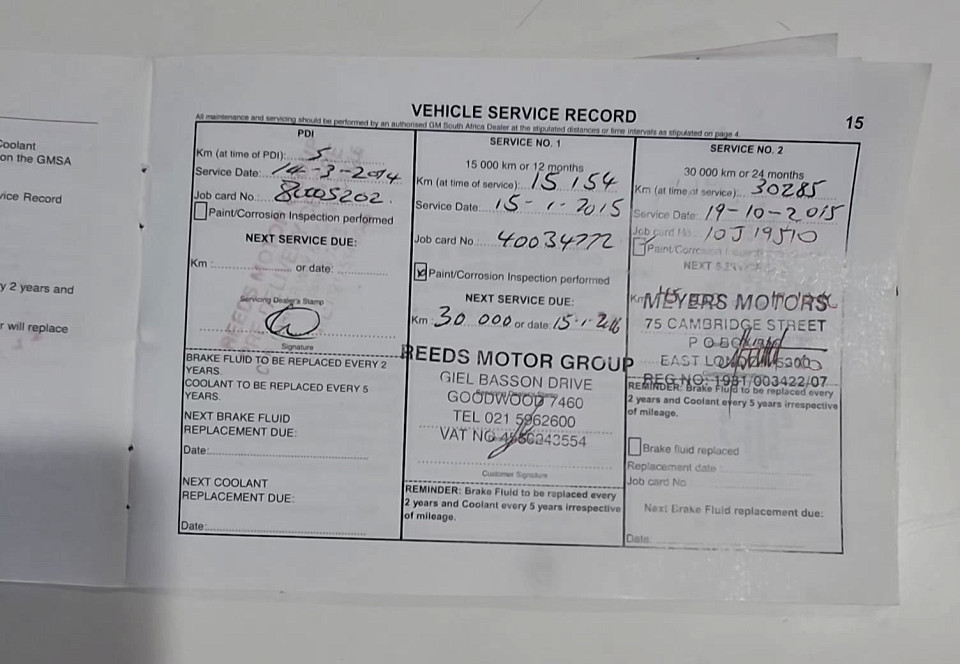 Coolant
on the GMSA
vice Record
y 2 years and
r will replace
VEHICLE SERVICE RECORD
15
All maintenance and servicing should be performed by an authorised GM South Africa Dealer at the stipulated distances or time intervals as stipulated on page 4.
PDI
Km (at time of PDI): 5
Service Date: 14-3-2014
Job card No.: 80005202.
Paint/Corrosion Inspection performed
NEXT SERVICE DUE:
Km : or date:
Servicing Dealer's Stamp
Signature
BRAKE FLUID TO BE REPLACED EVERY 2
YEARS.
COOLANT TO BE REPLACED EVERY 5
YEARS.
NEXT BRAKE FLUID
REPLACEMENT DUE:
Date:
NEXT COOLANT
REPLACEMENT DUE:
Date:
SERVICE NO. 1
15 000 km or 12 months
Km (at time of service): 15 154
Service Date: 15-1-2015
Job card No.: 40034772
Paint/Corrosion Inspection performed
NEXT SERVICE DUE:
Km 30 000 or date 15-1-2016
REEDS MOTOR GROUP
GIEL BASSON DRIVE
GOODWOOD 7460
TEL 021 5962600
VAT NO 4550243554
Customer Signature
REMINDER: Brake Fluid to be replaced every
2 years and Coolant every 5 years irrespective
of mileage.
SERVICE NO. 2
30 000 km or 24 months
Km (at time of service): 30285
Service Date: 19-10-2015
Job card No.: 10J19510
Paint/Corrosion
NEXT SERVICE
Km
MEYERS MOTORS
75 CAMBRIDGE STREET
P O BOX
EAST LONDON
REG NO: 1981/003422/07
REMINDER: Brake Fluid to be replaced every
2 years and Coolant every 5 years irrespective
of mileage.
Brake fluid replaced
Replacement date :
Job card No
Next Brake Fluid replacement due:
Date: